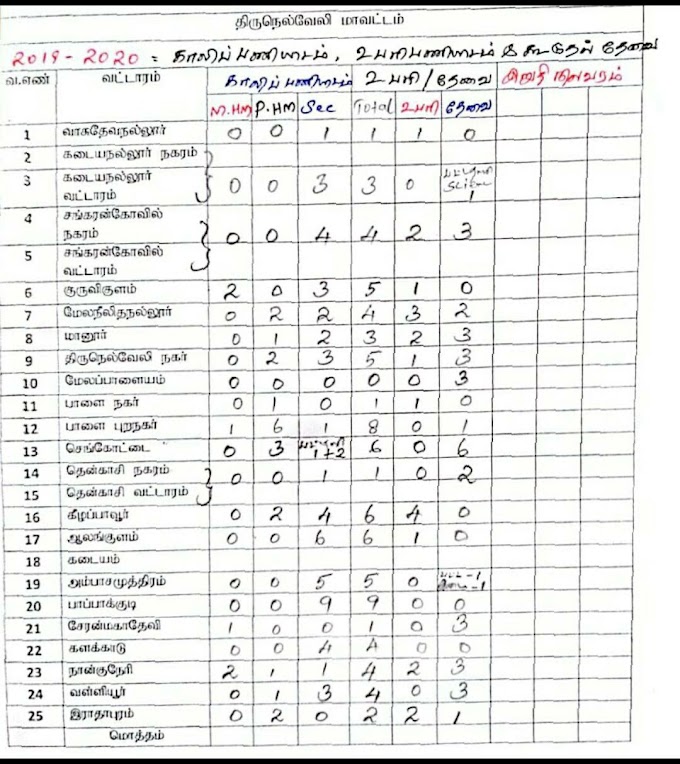 திருநெல்வேலி மாவட்டம்
2019-2020 = காலிப் பணியிடம், உபரிபணியிடம் & கூடுதல் தேவை
வ.எண் வட்டாரம் காலிப் பணியிடம் உபரி/தேவை இறுதி நிலவரம்
M.HM P.HM Sec Total உபரி தேவை
1 வாசுதேவநல்லூர் 0 0 1 1 1 0
2 கடையநல்லூர் நகரம்
3 கடையநல்லூர் வட்டாரம் 0 0 3 3 0 1
4 சங்கரன்கோவில் நகரம் 0 0 4 4 2 3
5 சங்கரன்கோவில் வட்டாரம்
6 குருவிகுளம் 2 0 3 5 1 0
7 மேலநீலிதநல்லூர் 0 2 2 4 3 2
8 மானூர் 0 1 2 3 2 3
9 திருநெல்வேலி நகர் 0 2 3 5 1 3
10 மேலப்பாளையம் 0 0 0 0 0 3
11 பாளை நகர் 0 1 0 1 1 0
12 பாளை புறநகர் 1 6 1 8 0 1
13 செங்கோட்டை 0 3 1+2 6 0 6
14 தென்காசி நகரம் 0 0 1 1 0 2
15 தென்காசி வட்டாரம்
16 கீழப்பாவூர் 0 2 4 6 4 0
17 ஆலங்குளம் 0 0 6 6 1 0
18 கடையம்
19 அம்பாசமுத்திரம் 0 0 5 5 0
20 பாப்பாக்குடி 0 0 9 9 0 0
21 சேரன்மகாதேவி 1 0 0 1 0 3
22 களக்காடு 0 0 4 4 0 0
23 நான்குநேரி 2 1 1 4 2 3
24 வள்ளியூர் 0 1 3 4 0 3
25 இராதாபுரம் 0 2 0 2 2 1
மொத்தம்